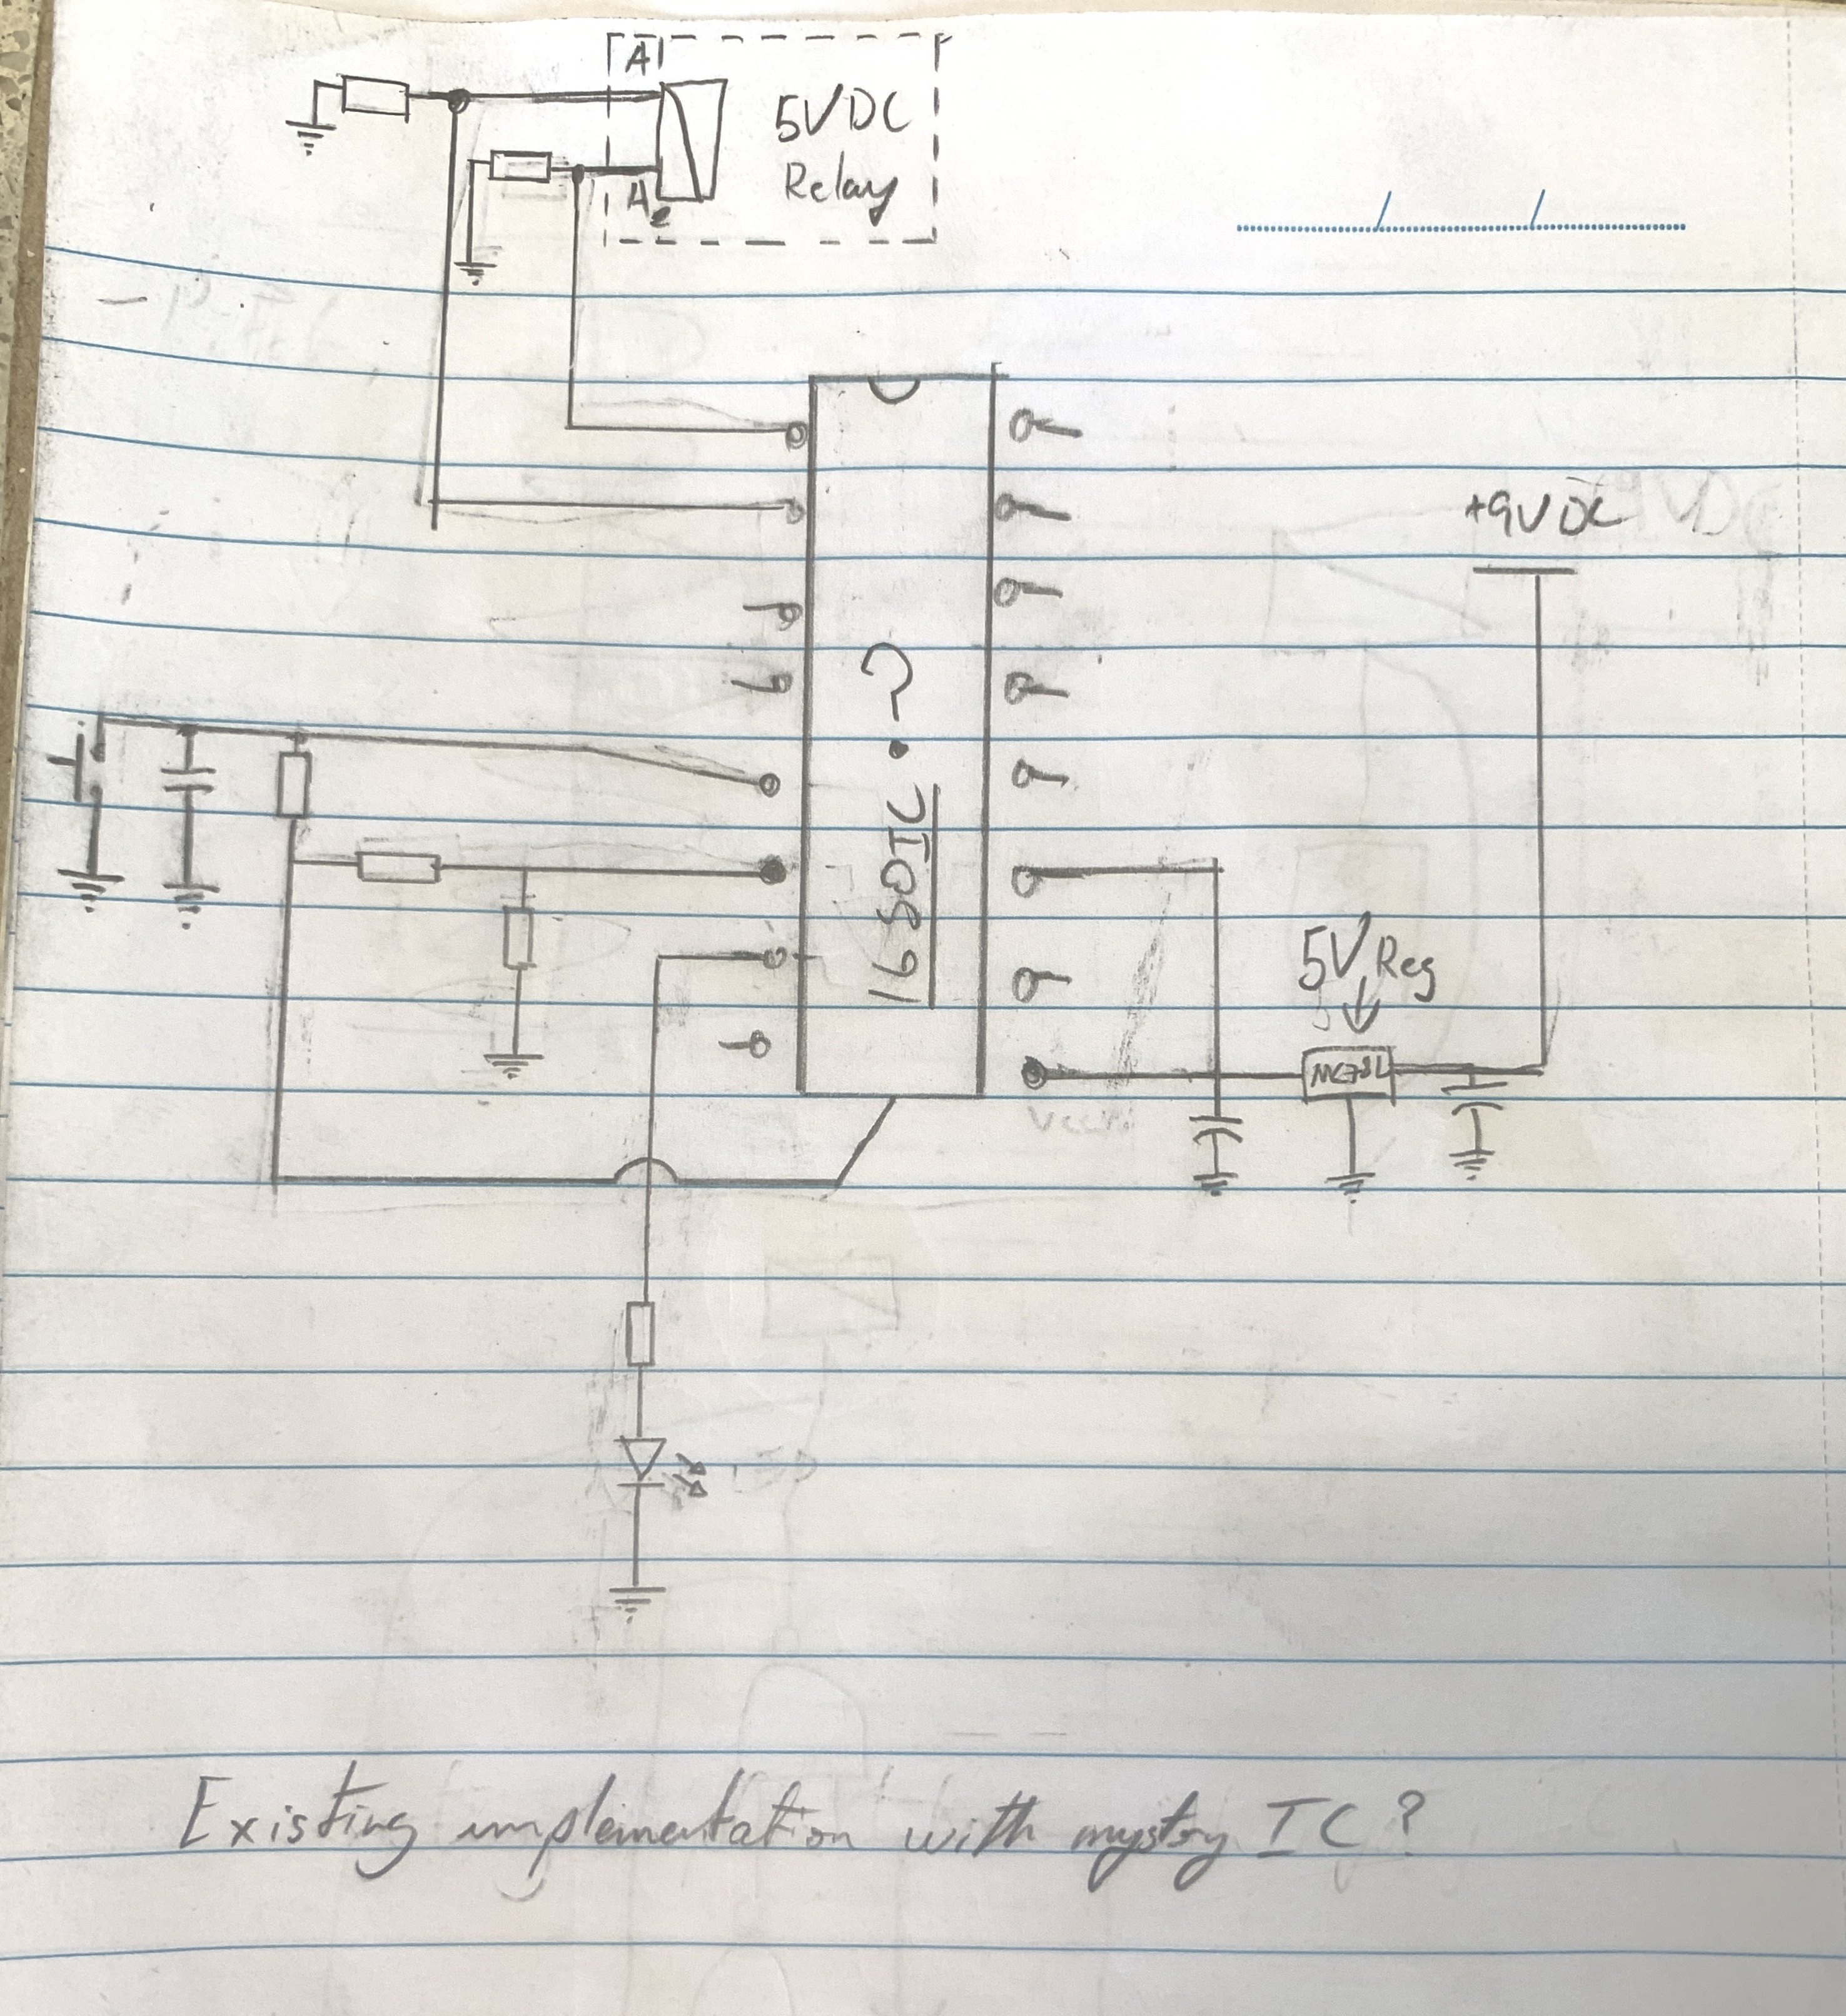 A1
5VDC
Relay
A2
+9VDC
?
16 SOIC
5V Reg
MC78L
Vcc
Existing implementation with mystry IC?